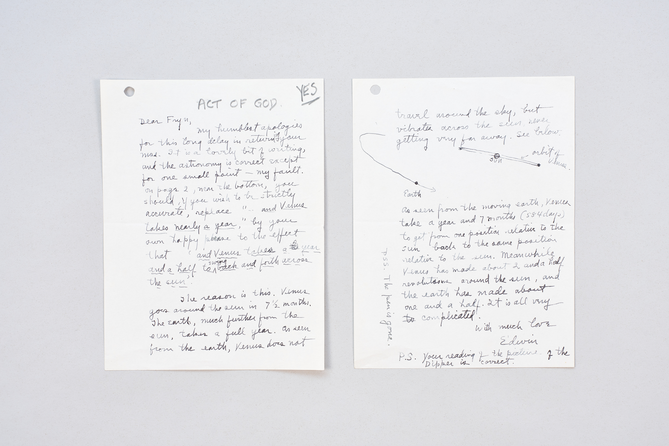 YES
ACT OF GOD.
Dear Faryn,
my humblest apologies
for this long delay in returning your
mss. It is a lovely bit of writing,
and the astronomy is correct except
for one small point – my fault.
on page 2, near the bottom, you
should, if you wish to be strictly
accurate, replace " and Venus
takes nearly a year." by your
own happy phrase to the effect
that " and Venus takes a year
and a half to back and forth across
the sun.
The reason is this. Venus
goes around the sun in 7½ months.
The earth, much further from the
sun, takes a full year. As seen
from the earth, Venus does not
travel around the sky, but
vibrates across the sun, never
getting very far away. See below.
orbit of
Venus
Sun
Earth
As seen from the moving earth, Venus
takes a year and 7 months (584 days)
to get from one position relative to the
sun back to the same position
relative to the sun. Meanwhile
Venus has made about 2 and a half
revolutions around the sun, and
the earth has made about
one and a half. It is all very
complicated.
With much love
Edwin
P.S. Your reading of the position of the
Dipper is correct.
P.S.S. The pen is gone.